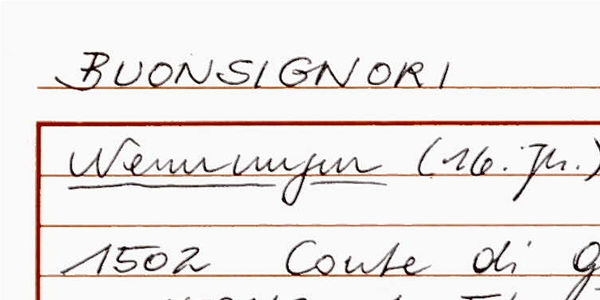 BUONSIGNORI
Nennungen (16. Jh.)
1502 Conte di